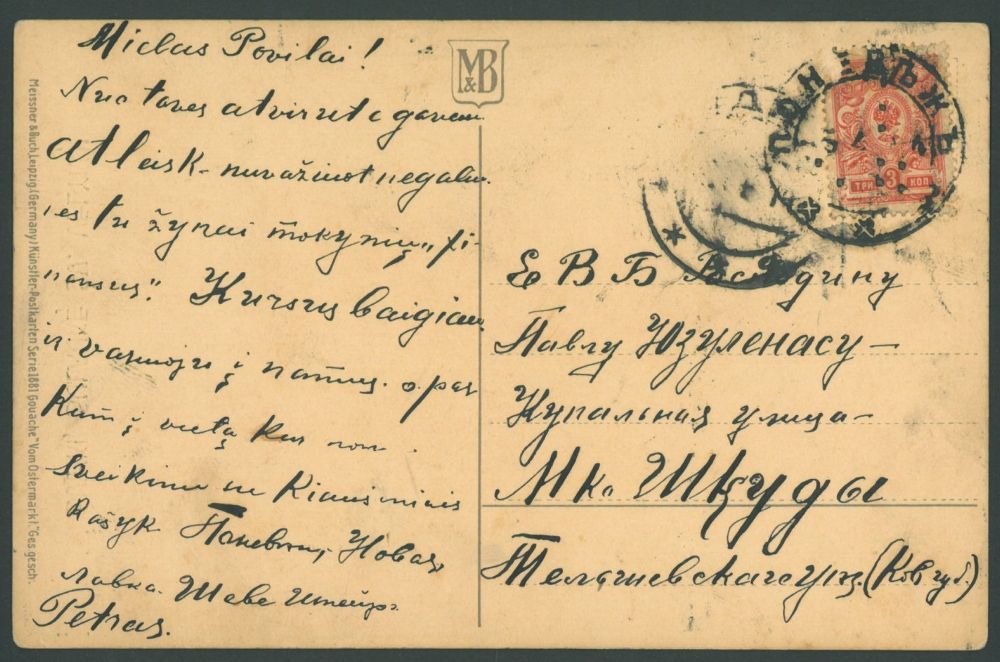 Mielas Povilai!
Nuo taves atvirutę gavau
atleisk - nuvažiuot negalė
ies tu žynai mokynių „fi-
nansus“. Kursus baigiau
ir vasarojų į namus. o pas
Kum į vietą kur nors.
Sveikinu su Kiaušiniais
Rašyk Поневѣж, Новая
лавка. Шеве
Petras.
M&B
Meissner & Buch, Leipzig (Germany) Künstler-Postkarten Serie 1881 Gouache "Vom Ostermarkt." Ges. gesch.
ПОНЕВѢЖЪ
ТРИ 3 КОП
Е В Б
Павлу Юзуленасу —
Купальная улица —
Мк. Шкуды
Тельшевскаго уѣз. (Ков губ.)